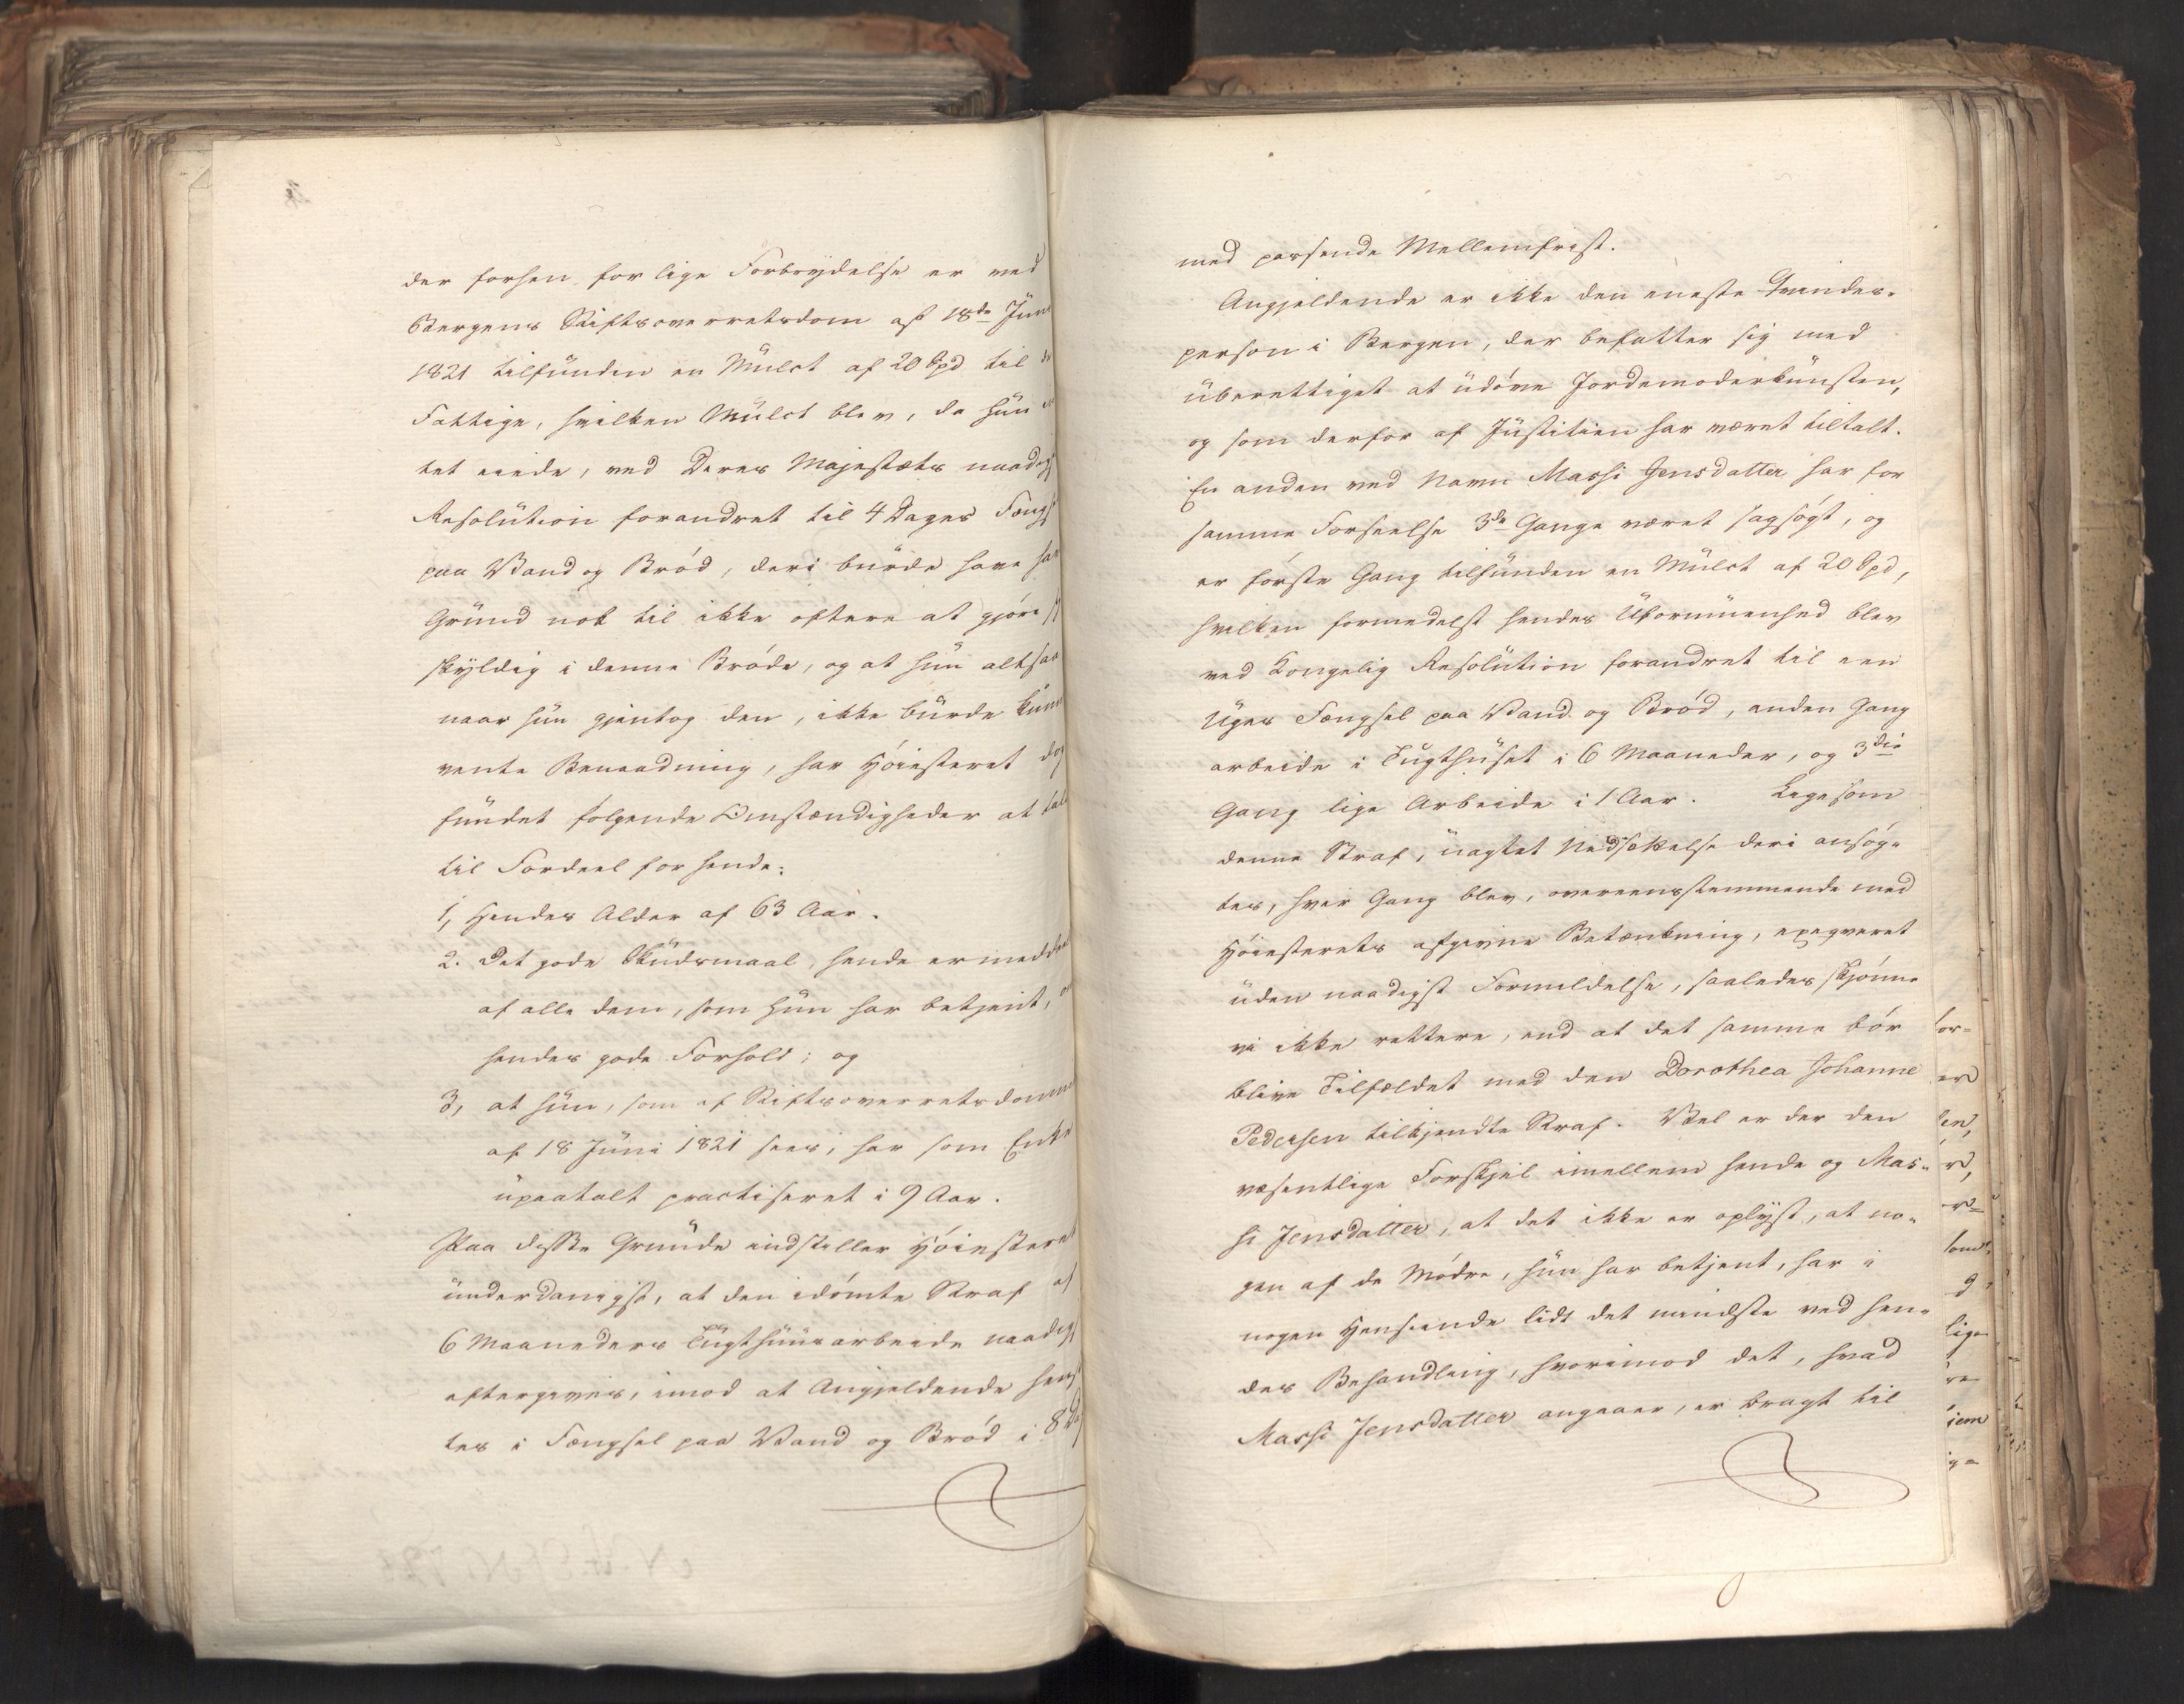 der forhen for lige Forbrydelse er ved
Bergens Stiftsoverretsdom af 18de Juni
1821 tilfunden en Mulct af 20 Spd til de
Fattige, hvilken Mulct blev, da hun
tet eiede, ved Deres Majestæts naadigst
Resolution forandret til 4 Dages Fængs
paa Vand og Brød, deri burde have hav
Grund nok til ikke oftere at gjøre si
skyldig i denne Brøde, og at hun altsaa
naar hun gjentog den, ikke burde kunn
vente Benaadning, har Høiesteret dog
fundet følgende Omstændigheder at tale
til Fordeel for hende:
1, Hendes Alder af 63 Aar.
2. Det gode Skudsmaal, hende er meddeel
af alle dem, som hun har betjent, og
hendes gode Forhold; og
3, at hun, som af Stiftsoverretsdomme
af 18 Juni 1821 sees, har som Enke
upaatalt practiseret i 9 Aar.
Paa disse Grunde indstiller Høiesteret
underdanigst, at den idømte Straf af
6 Maaneders Tugthuusarbeide naadigs
eftergives, imod at Angjeldende hens
tes i Fængsel paa Vand og Brød i 8 Da
med passende Mellemfrist.
Angjeldende er ikke den eneste Qvindes-
person i Bergen, der befatter sig med
uberettiget at udøve Jordemoderkunsten,
og som derfor af Justitien har været tiltalt.
En anden ved Navn Massi Jensdatter har for
samme Forseelse 3de Gange været sagsøgt, og
er første Gang tilfunden en Mulct af 20 Spd,
hvilken formedelst hendes Uformuenhed blev
ved Kongelig Resolution forandret til een
Uges Fængsel paa Vand og Brød, anden Gang
arbeide i Tugthuset i 6 Maaneder, og 3die
Gang lige Arbeide i 1 Aar. Ligesom
denne Straf, uagtet Nedsættelse deri ansøg-
tes, hver Gang blev, overeensstemmende med
Høiesterets afgivne Betænkning, exeqveret
uden naadigst Formildelse, saaledes skjønne
vi ikke rettere, end at det samme bør
blive Tilfældet med den Dorothea Johanne
Pedersen tilkjendte Straf. Vel er der den
væsentlige Forskjel imellem hende og Mas-
si Jensdatter, at det ikke er oplyst, at no-
gen af de Mødre, hun har betjent, har i
nogen Henseende lidt det mindste ved hen-
des Behandling, hvorimod det, hvad
Massi Jensdatter angaaer, er bragt til